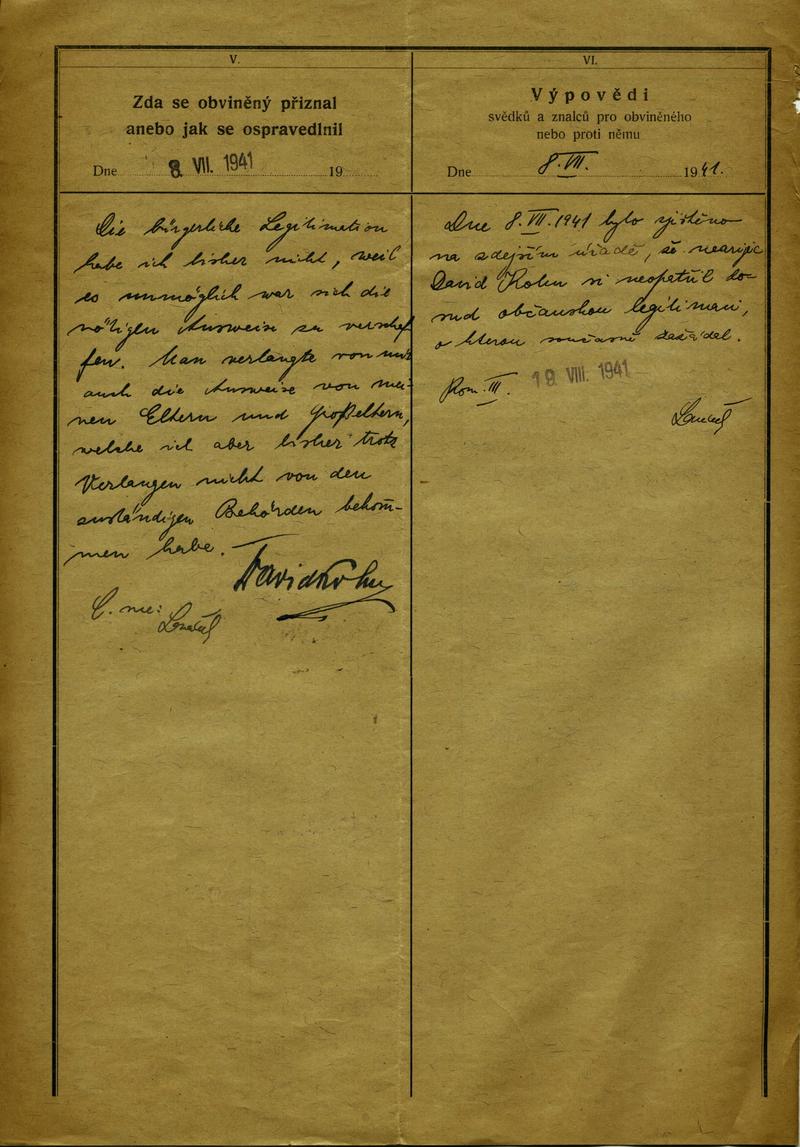 V.
Zda se obviněný přiznal
anebo jak se ospravedlnil
Dne 8. VII. 1941 19
Die bürgerliche Legitimation
habe ich bisher nicht, weil
es unmöglich war sich die
nötigen Ausweise zu verschaf
fen. Man verlangte von mir
auch die Ausweise von mei-
nen Eltern und Großeltern,
welche ich aber bisher trotz
Verlangen nicht von den
zuständigen Behörden bekom-
men habe.
David Kohn
C. me:
VI.
Výpovědi
svědků a znalců pro obviněného
nebo proti němu
Dne 8. VII. 1941.
Dne 8. VII. 1941 bylo zjištěno
na zdejším úřadě, že nearijec
David Kohn si neopatřil do-
sud občanskou legitimaci,
o kterou současně zažádal.
Kom. III. 19 VIII. 1941